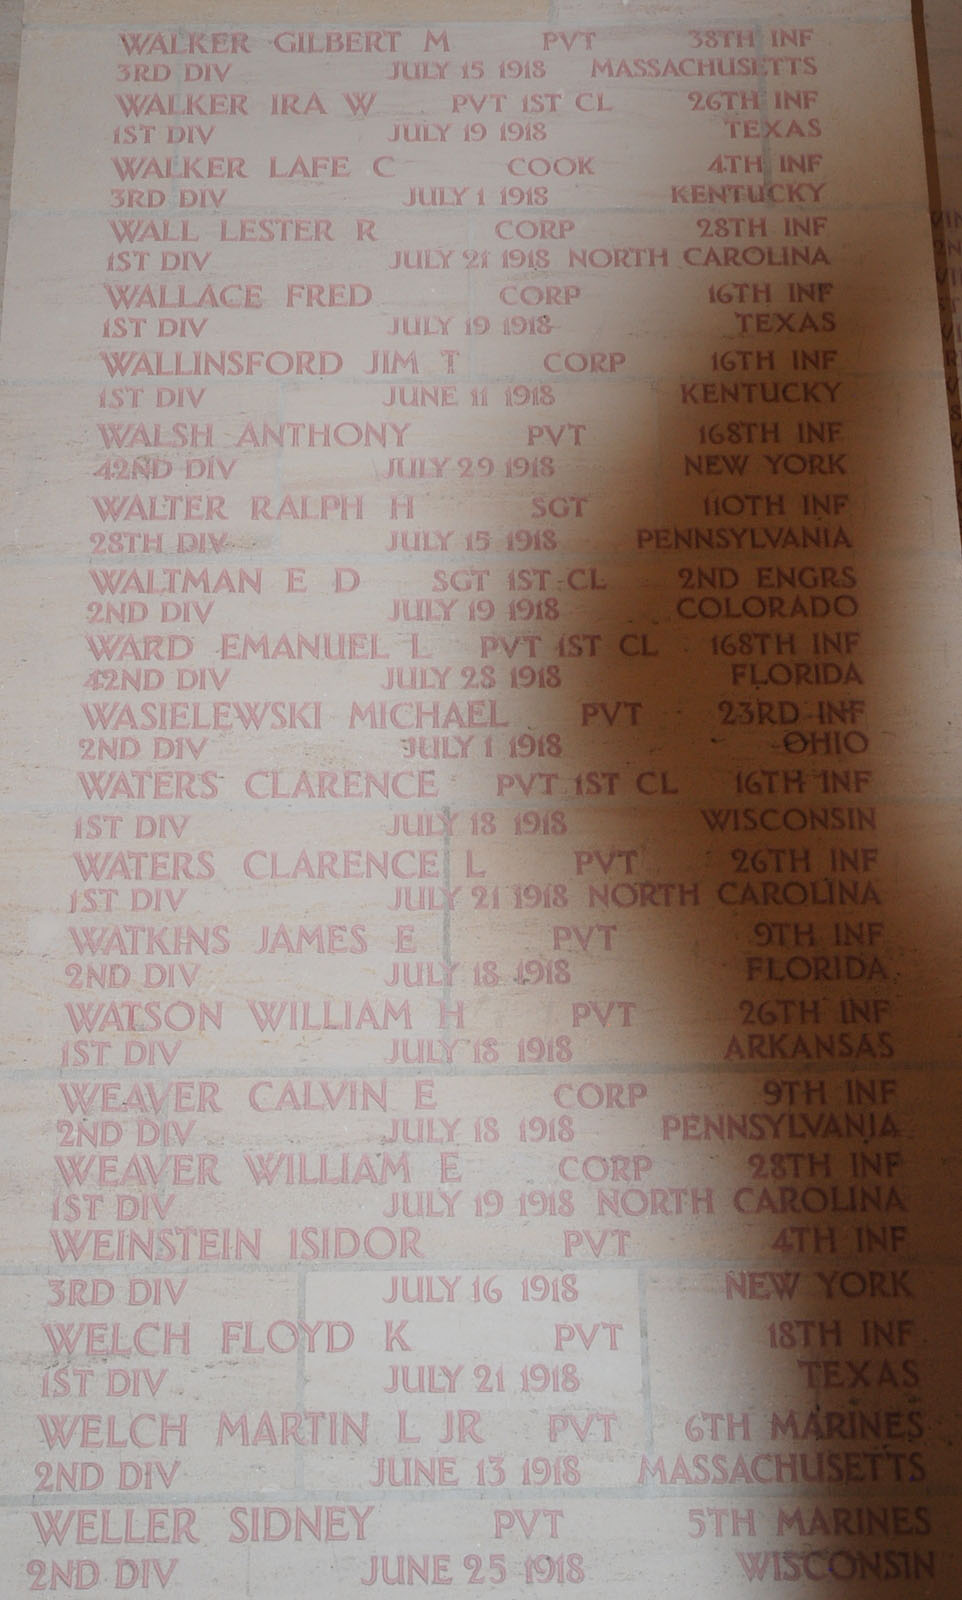 WALKER GILBERT M PVT 38TH INF
3RD DIV JULY 15 1918 MASSACHUSETTS
WALKER IRA W PVT 1ST CL 26TH INF
1ST DIV JULY 19 1918 TEXAS
WALKER LAFE C COOK 4TH INF
3RD DIV JULY 1 1918 KENTUCKY
WALL LESTER R CORP 28TH INF
1ST DIV JULY 21 1918 NORTH CAROLINA
WALLACE FRED CORP 16TH INF
1ST DIV JULY 19 1918 TEXAS
WALLINSFORD JIM T CORP 16TH INF
1ST DIV JUNE 11 1918 KENTUCKY
WALSH ANTHONY PVT 168TH INF
42ND DIV JULY 29 1918 NEW YORK
WALTER RALPH H SGT 110TH INF
28TH DIV JULY 15 1918 PENNSYLVANIA
WALTMAN E D SGT 1ST CL 2ND ENGRS
2ND DIV JULY 19 1918 COLORADO
WARD EMANUEL L PVT 1ST CL 168TH INF
42ND DIV JULY 28 1918 FLORIDA
WASIELEWSKI MICHAEL PVT 23RD INF
2ND DIV JULY 1 1918 OHIO
WATERS CLARENCE PVT 1ST CL 16TH INF
1ST DIV JULY 18 1918 WISCONSIN
WATERS CLARENCE L PVT 26TH INF
1ST DIV JULY 21 1918 NORTH CAROLINA
WATKINS JAMES E PVT 9TH INF
2ND DIV JULY 18 1918 FLORIDA
WATSON WILLIAM H PVT 26TH INF
1ST DIV JULY 18 1918 ARKANSAS
WEAVER CALVIN E CORP 9TH INF
2ND DIV JULY 18 1918 PENNSYLVANIA
WEAVER WILLIAM E CORP 28TH INF
1ST DIV JULY 19 1918 NORTH CAROLINA
WEINSTEIN ISIDOR PVT 4TH INF
3RD DIV JULY 16 1918 NEW YORK
WELCH FLOYD K PVT 18TH INF
1ST DIV JULY 21 1918 TEXAS
WELCH MARTIN L JR PVT 6TH MARINES
2ND DIV JUNE 13 1918 MASSACHUSETTS
WELLER SIDNEY PVT 5TH MARINES
2ND DIV JUNE 25 1918 WISCONSIN